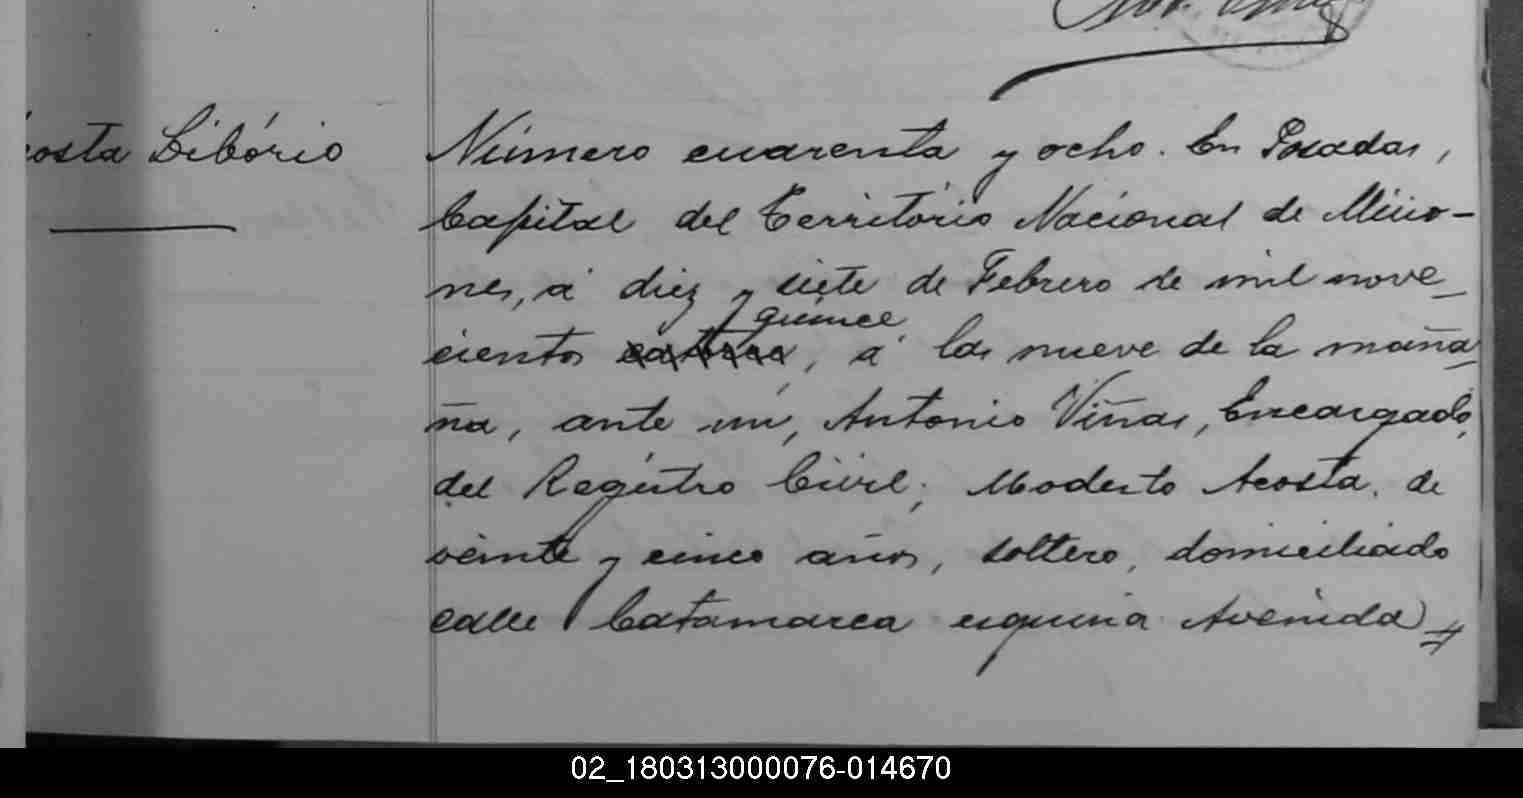 costa Libório
Número cuarenta y ocho. En Posadas,
Capital del Território Nacional de Misio-
nes, á diez y siete de Febrero de mil nove_
quince
cientos catorce, á las nueve de la maña_
ña, ante mi, Antonio Viñas, Encargado,
del Registro Civil; Modesto Acosta, de
veinte y cinco años, soltero, domiciliado
calle Catamarca esquina Avenida
02_180313000076-014670